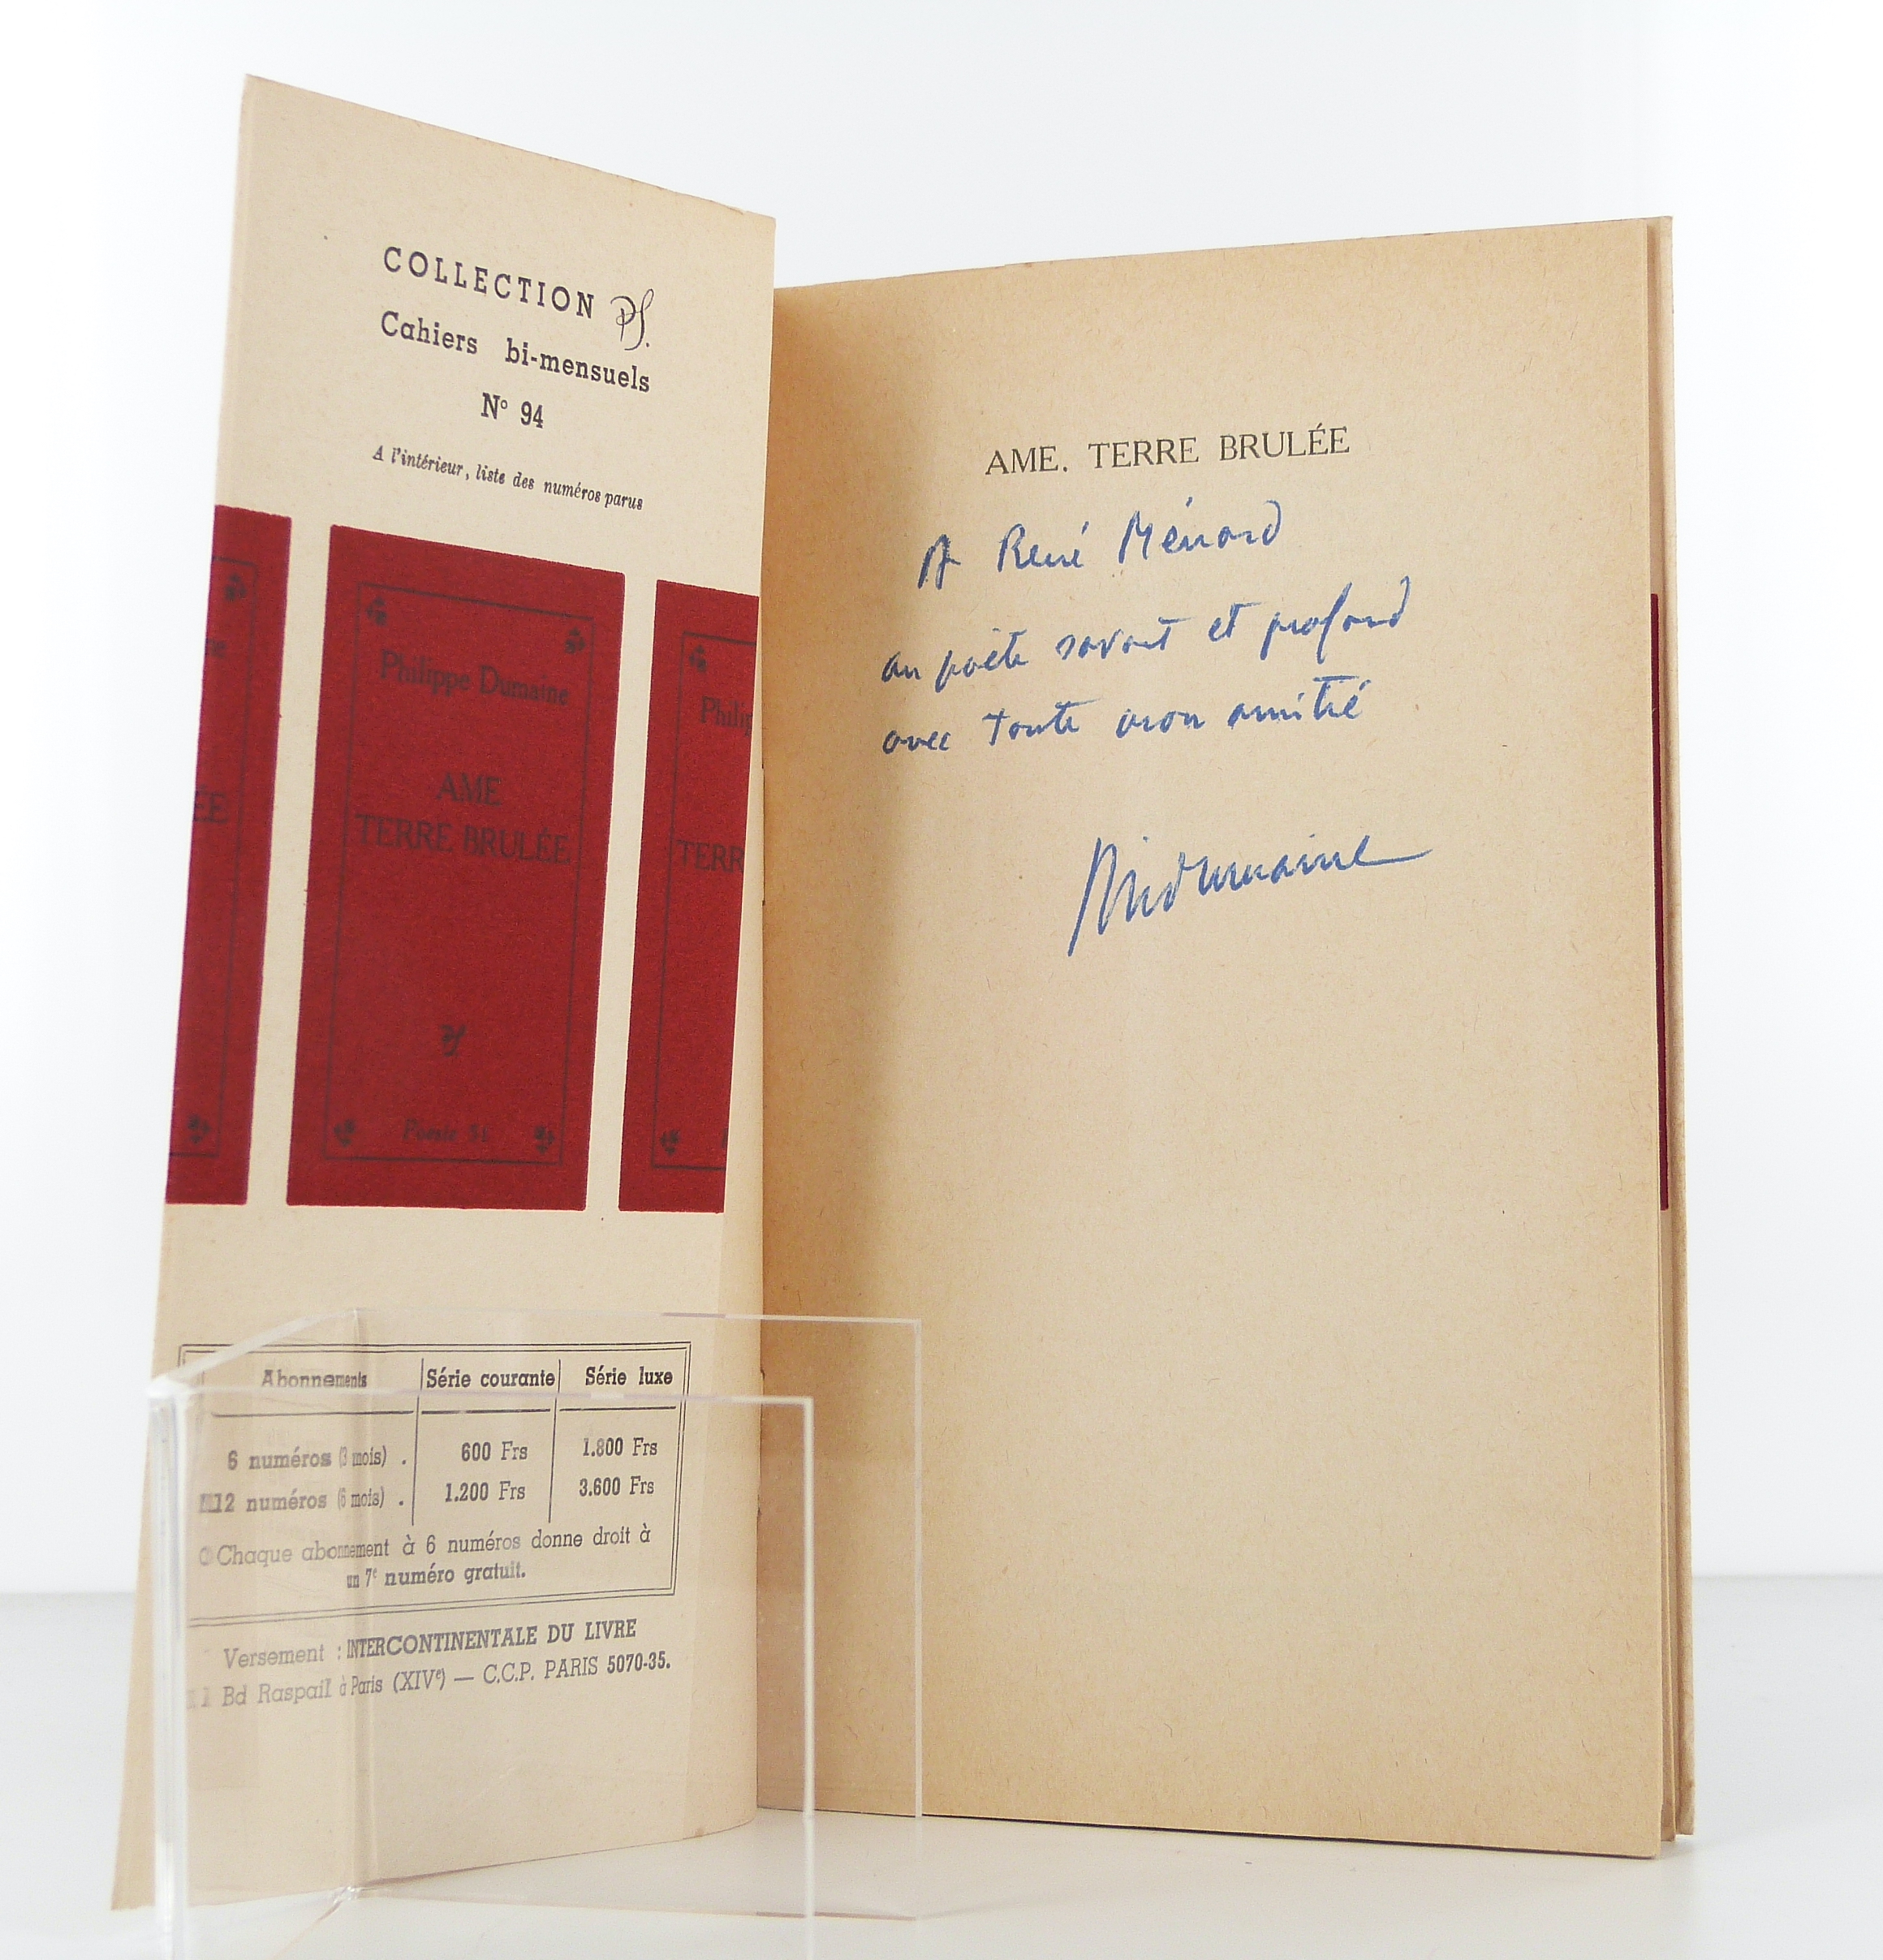 COLLECTION PS.
Cahiers bi-mensuels
N° 94
A l'intérieur, liste des numéros parus
ÉE
Philippe Dumaine
AME
TERRE BRULÉE
Poésie 51
Philip
TERR
Abonnements Série courante Série luxe
6 numéros (3 mois) . 600 Frs 1.800 Frs
12 numéros (6 mois) . 1.200 Frs 3.600 Frs
Chaque abonnement à 6 numéros donne droit à
un 7e numéro gratuit.
Versement : INTERCONTINENTALE DU LIVRE
Bd Raspail à Paris (XIVe) — C.C.P. PARIS 5070-35.
AME. TERRE BRULÉE
A René Ménard
au poète savant et profond
avec toute mon amitié
Dumaine